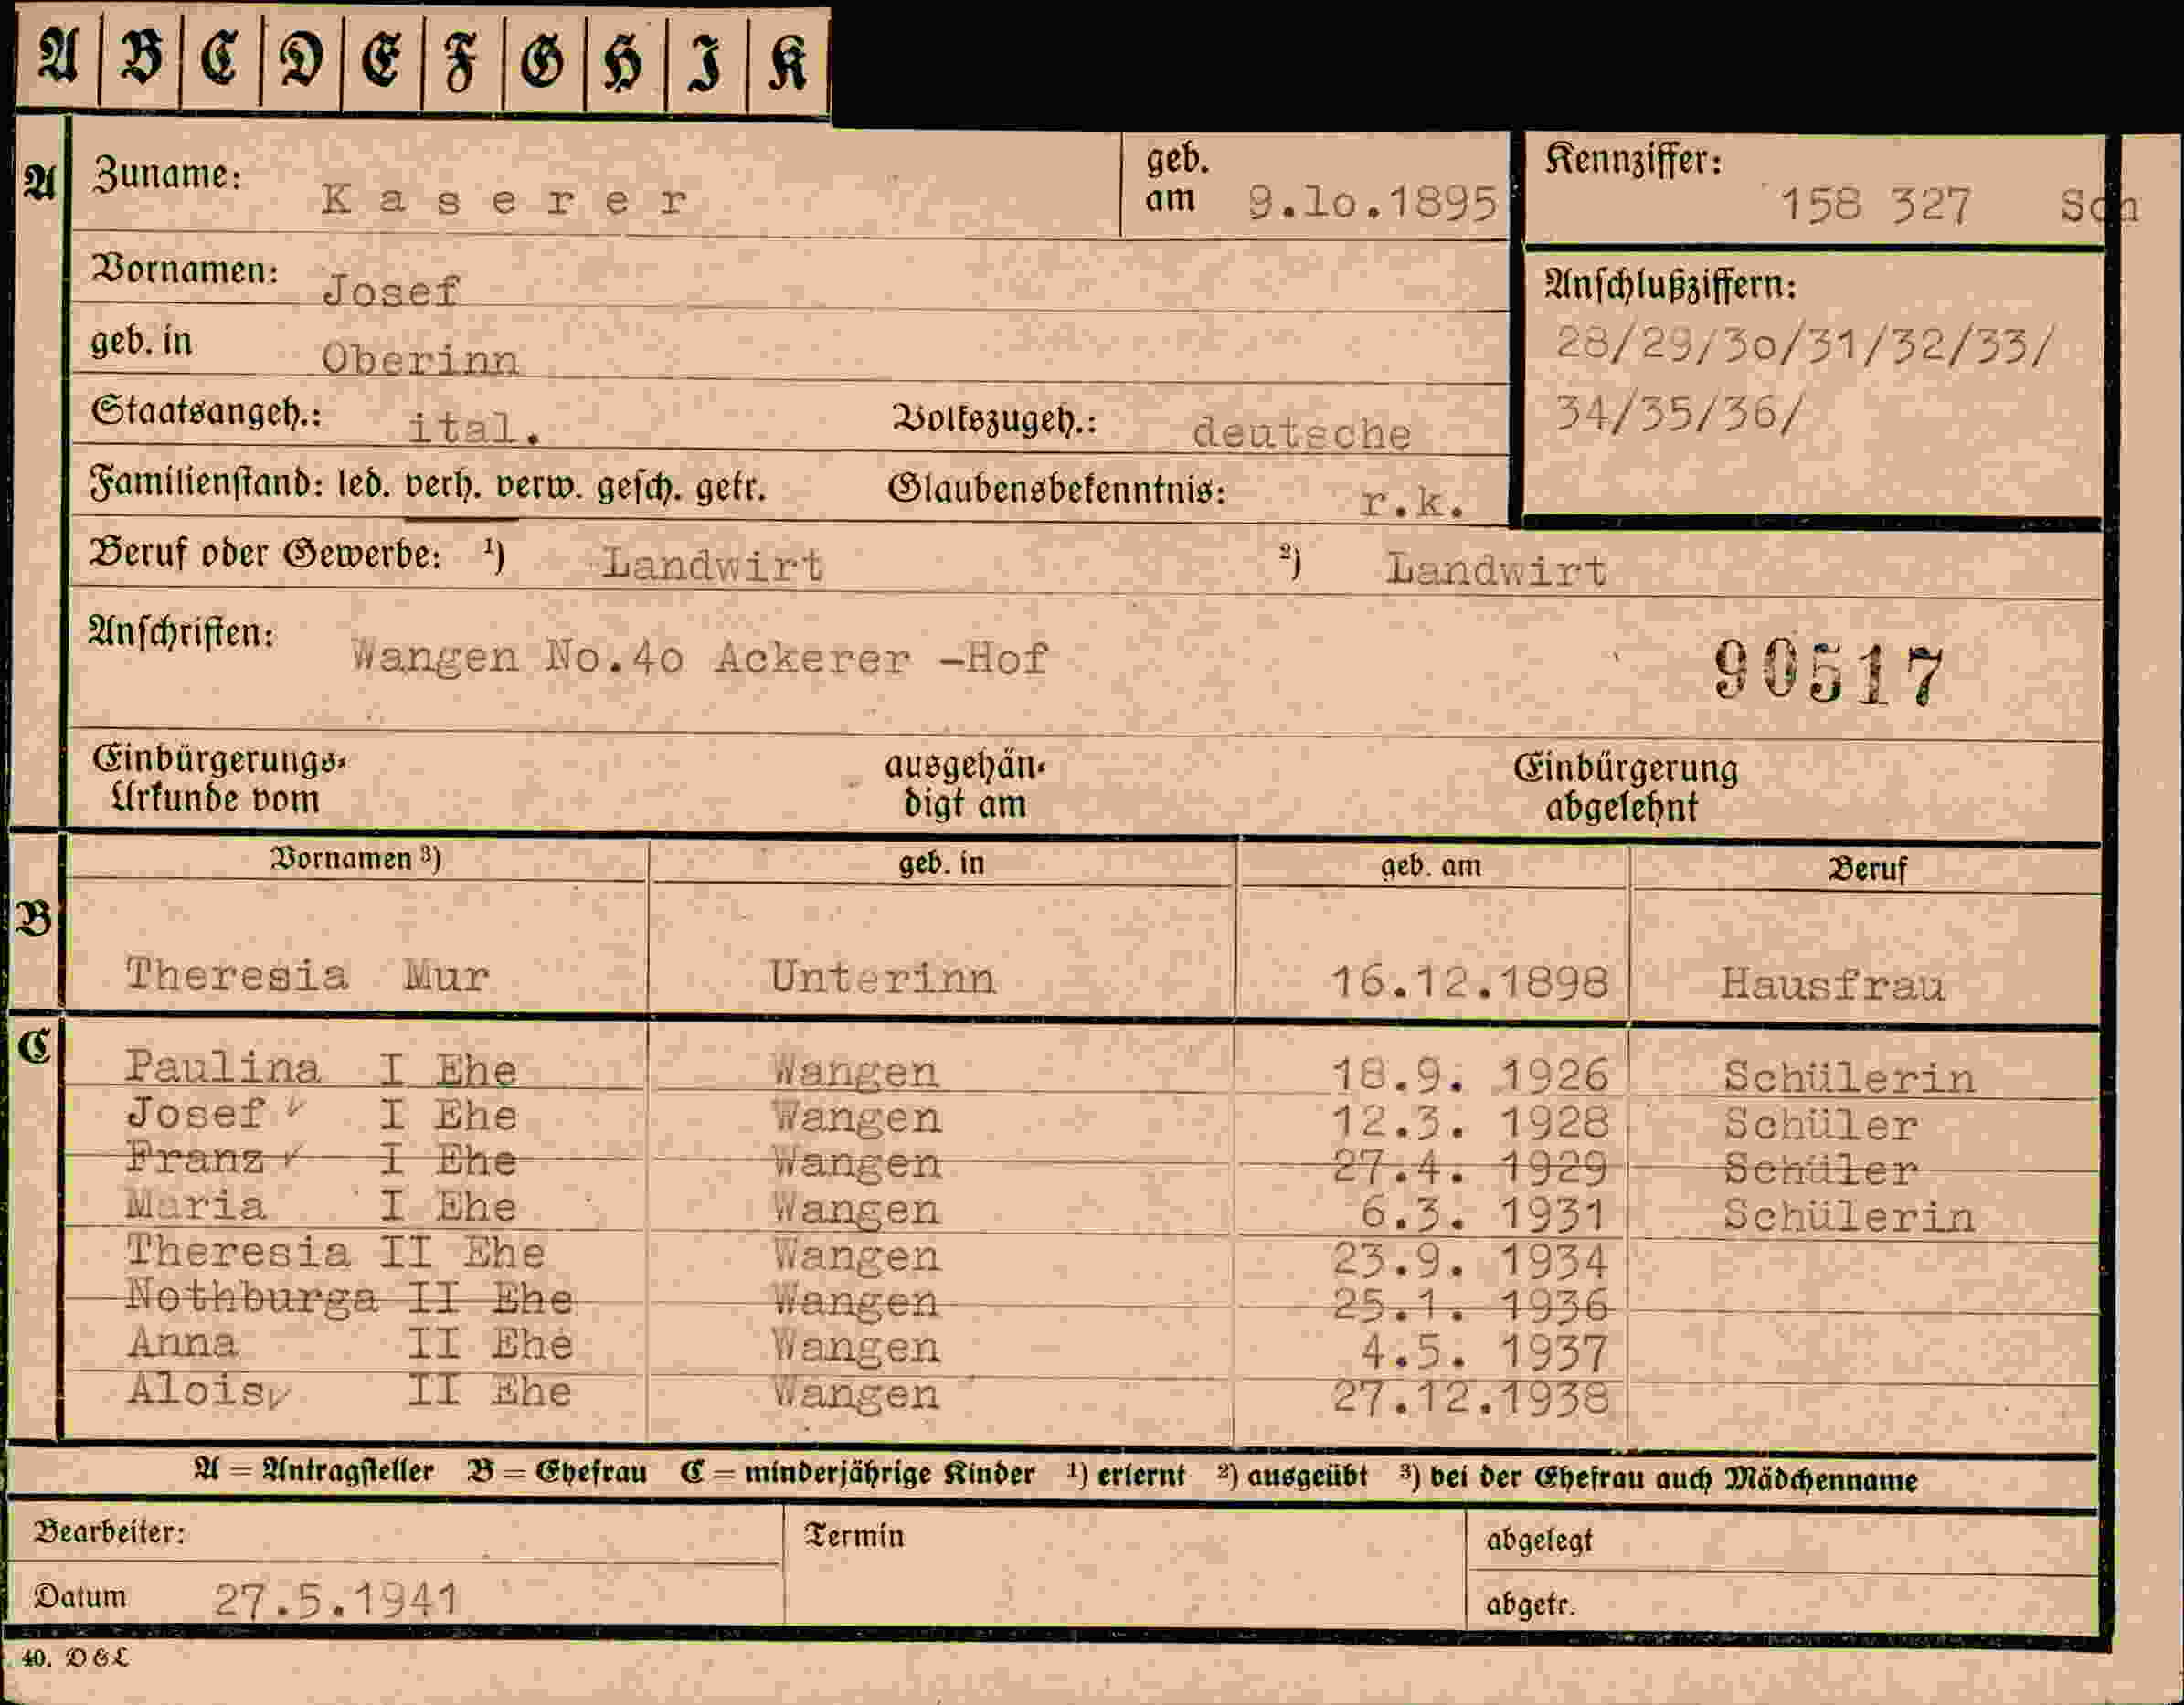 A B C D E F G H I K
A Zuname: Kaserer geb. am 9.10.1895 Kennziffer: 158 327 Sch
Vornamen: Josef Anschlußziffern:
geb. in Oberinn 28/29/30/31/32/33/
Staatsangeh.: ital. Volkszugeh.: deutsche 34/35/36/
Familienstand: led. verh. verw. gesch. getr. Glaubensbekenntnis: r.k.
Beruf oder Gewerbe: ¹) Landwirt ²) Landwirt
Anschriften: Wangen No.40 Ackerer -Hof 90517
Einbürgerungs- ausgehän- Einbürgerung
Urkunde vom digt am abgelehnt
Vornamen ³) geb. in geb. am Beruf
B
Theresia Mur Unterinn 16.12.1898 Hausfrau
C
Paulina I Ehe Wangen 18.9. 1926 Schülerin
Josef I Ehe Wangen 12.3. 1928 Schüler
Franz I Ehe Wangen 27.4. 1929 Schüler
Maria I Ehe Wangen 6.3. 1931 Schülerin
Theresia II Ehe Wangen 23.9. 1934
Nothburga II Ehe Wangen 25.1. 1936
Anna II Ehe Wangen 4.5. 1937
Alois II Ehe Wangen 27.12.1938
A = Antragsteller B = Ehefrau C = minderjährige Kinder ¹) erlernt ²) ausgeübt ³) bei der Ehefrau auch Mädchenname
Bearbeiter: Termin abgelegt
Datum 27.5.1941 abgetr.
40. D&L